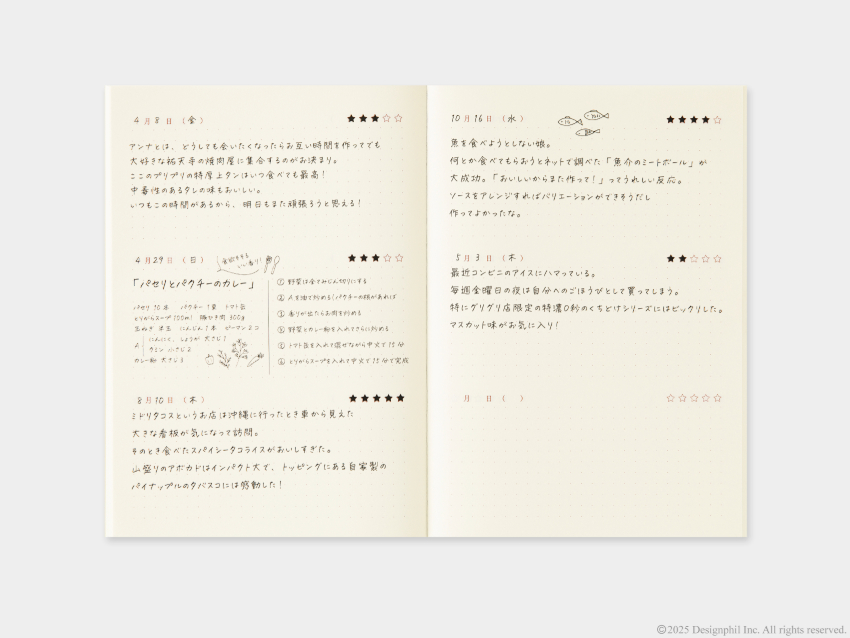 4月8日（金）
アンナとは、どうしても会いたくなったらお互い時間を作ってでも
大好きな祐天寺の焼肉屋に集合するのがお決まり。
ここのプリプリの特厚上タンはいつ食べても最高！
中毒性のあるタレの味もおいしい。
いつもこの時間があるから、明日もまた頑張ろうと思える！
4月29日（日）
食欲をそそる
いい香り！
「パセリとパクチーのカレー」
パセリ 10本 パクチー 1束 トマト缶
とりがらスープ 100ml 豚ひき肉 300g
玉ねぎ 半玉 にんじん 1本 ピーマン 2コ
A にんにく、しょうが 大さじ1
クミン 小さじ2
カレー粉 大さじ3
① 野菜は全てみじん切りにする
② 人を油で炒める(パクチーの根があれば
③ 香りが出たらお肉を炒める
④ 野菜とカレー粉を入れてさらに炒める
⑤ トマト缶を入れて混ぜながら中火で15分
⑥ とりがらスープを入れて中火で15分で完成
8月10日（木）
ミドリタコスというお店は沖縄に行ったとき車から見えた
大きな看板が気になって訪問。
そのとき食べたスパイシータコライスがおいしすぎた。
山盛りのアボカドはインパクト大で、トッピングにある自家製の
パイナップルのタバスコには感動した！
10月16日（水）
魚を食べようとしない娘。
何とか食べてもらおうとネットで調べた「魚介のミートボール」が
大成功。「おいしいからまた作って！」ってうれしい反応。
ソースをアレンジすればバリエーションができそうだし
作ってよかったな。
5月3日（木）
最近コンビニのアイスにハマっている。
毎週金曜日の夜は自分へのごほうびとして買ってしまう。
特にグリグリ店限定の特濃0秒のくちどけシリーズにはビックリした。
マスカット味がお気に入り！
月 日（ ）
©2025 Designphil Inc. All rights reserved.